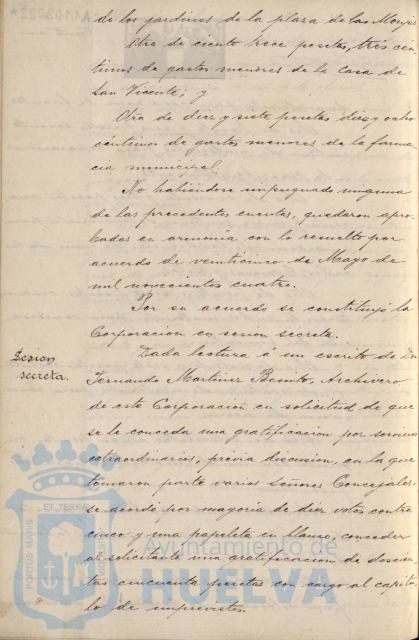 de los jardines de la plaza de las Monjas
Otra de ciento trece pesetas, tres cén-
timos de gastos menores de la Casa de
San Vicente; y
Otra de diez y siete pesetas diez y ocho
céntimos de gastos menores de la farma-
cia municipal.
No habiéndose impugnado ninguna
de las precedentes cuentas, quedaron apro-
badas en armonía con lo resuelto por
acuerdo de veinticinco de Mayo de
mil novecientos cuatro.
Por su acuerdo se constituyó la
Corporación en sesión secreta.
Sesion
secreta.
Dada lectura á un escrito de Dn
Fernando Martinez Benito, Archivero
de esta Corporación en solicitud de que
se le conceda una gratificación por servicios
extraordinarios, previa discusion, en la que
tomaron parte varios Señores Concejales,
se acordó por mayoría de diez votos contra
cinco y una papeleta en blanco, conceder
al solicitante una gratificación de doscien-
tas cincuenta pesetas con cargo al capítu-
lo de imprevistos.
PORTUS MARIS
ET TERRAE
Ayuntamiento de
HUELVA